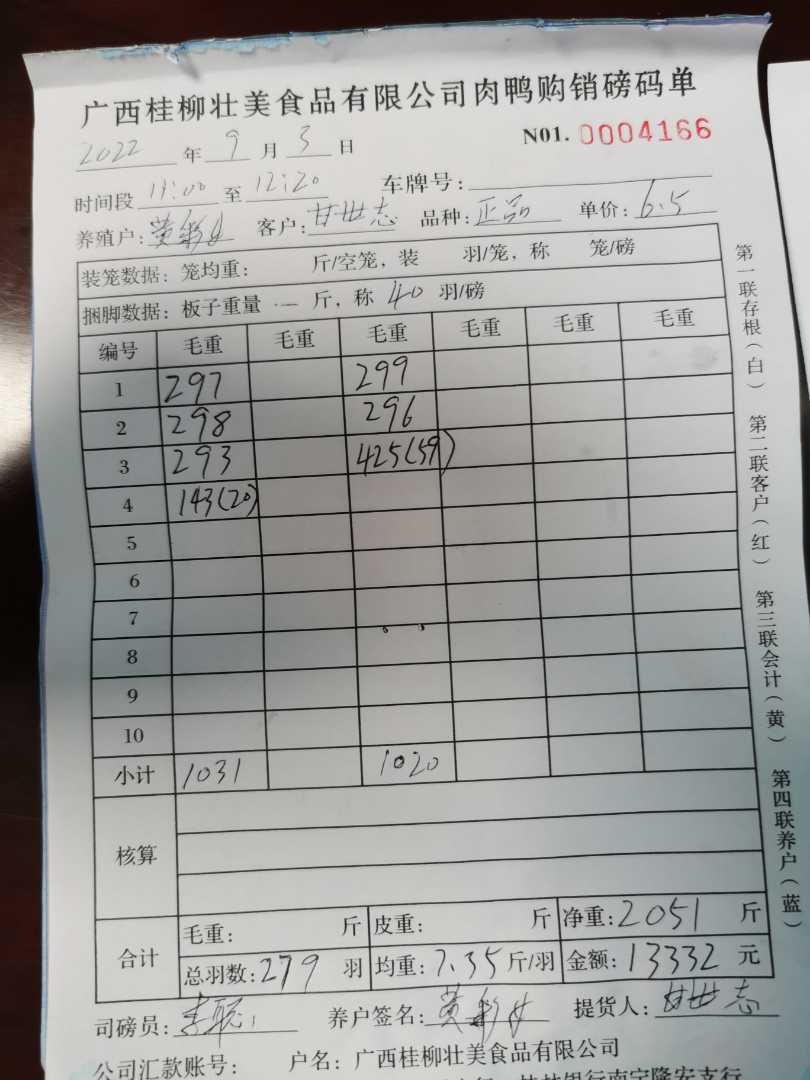 广西桂柳壮美食品有限公司肉鸭购销磅码单
2022 年 9 月 3 日 N01. 0004166
时间段 11:00 至 12:20 车牌号:
养殖户: 黄彩女 客户: 甘世志 品种: 正品 单价: 6.5
装笼数据: 笼均重: 斤/空笼, 装 羽/笼, 称 笼/磅
捆脚数据: 板子重量 — 斤, 称 40 羽/磅
编号 毛重 毛重 毛重 毛重 毛重 毛重
1 297 299
2 298 296
3 293 425(59)
4 143(20)
5
6
7
8
9
10
小计 1031 1020
核算
合计 毛重: 斤 皮重: 斤 净重: 2051 斤
总羽数: 279 羽 均重: 7.35 斤/羽 金额: 13332 元
司磅员: 养户签名: 黄彩女 提货人: 甘世志
公司汇款账号: 户名: 广西桂柳壮美食品有限公司
银行南宁隆安支行
第一联存根(白) 第二联客户(红) 第三联会计(黄) 第四联养户(蓝)